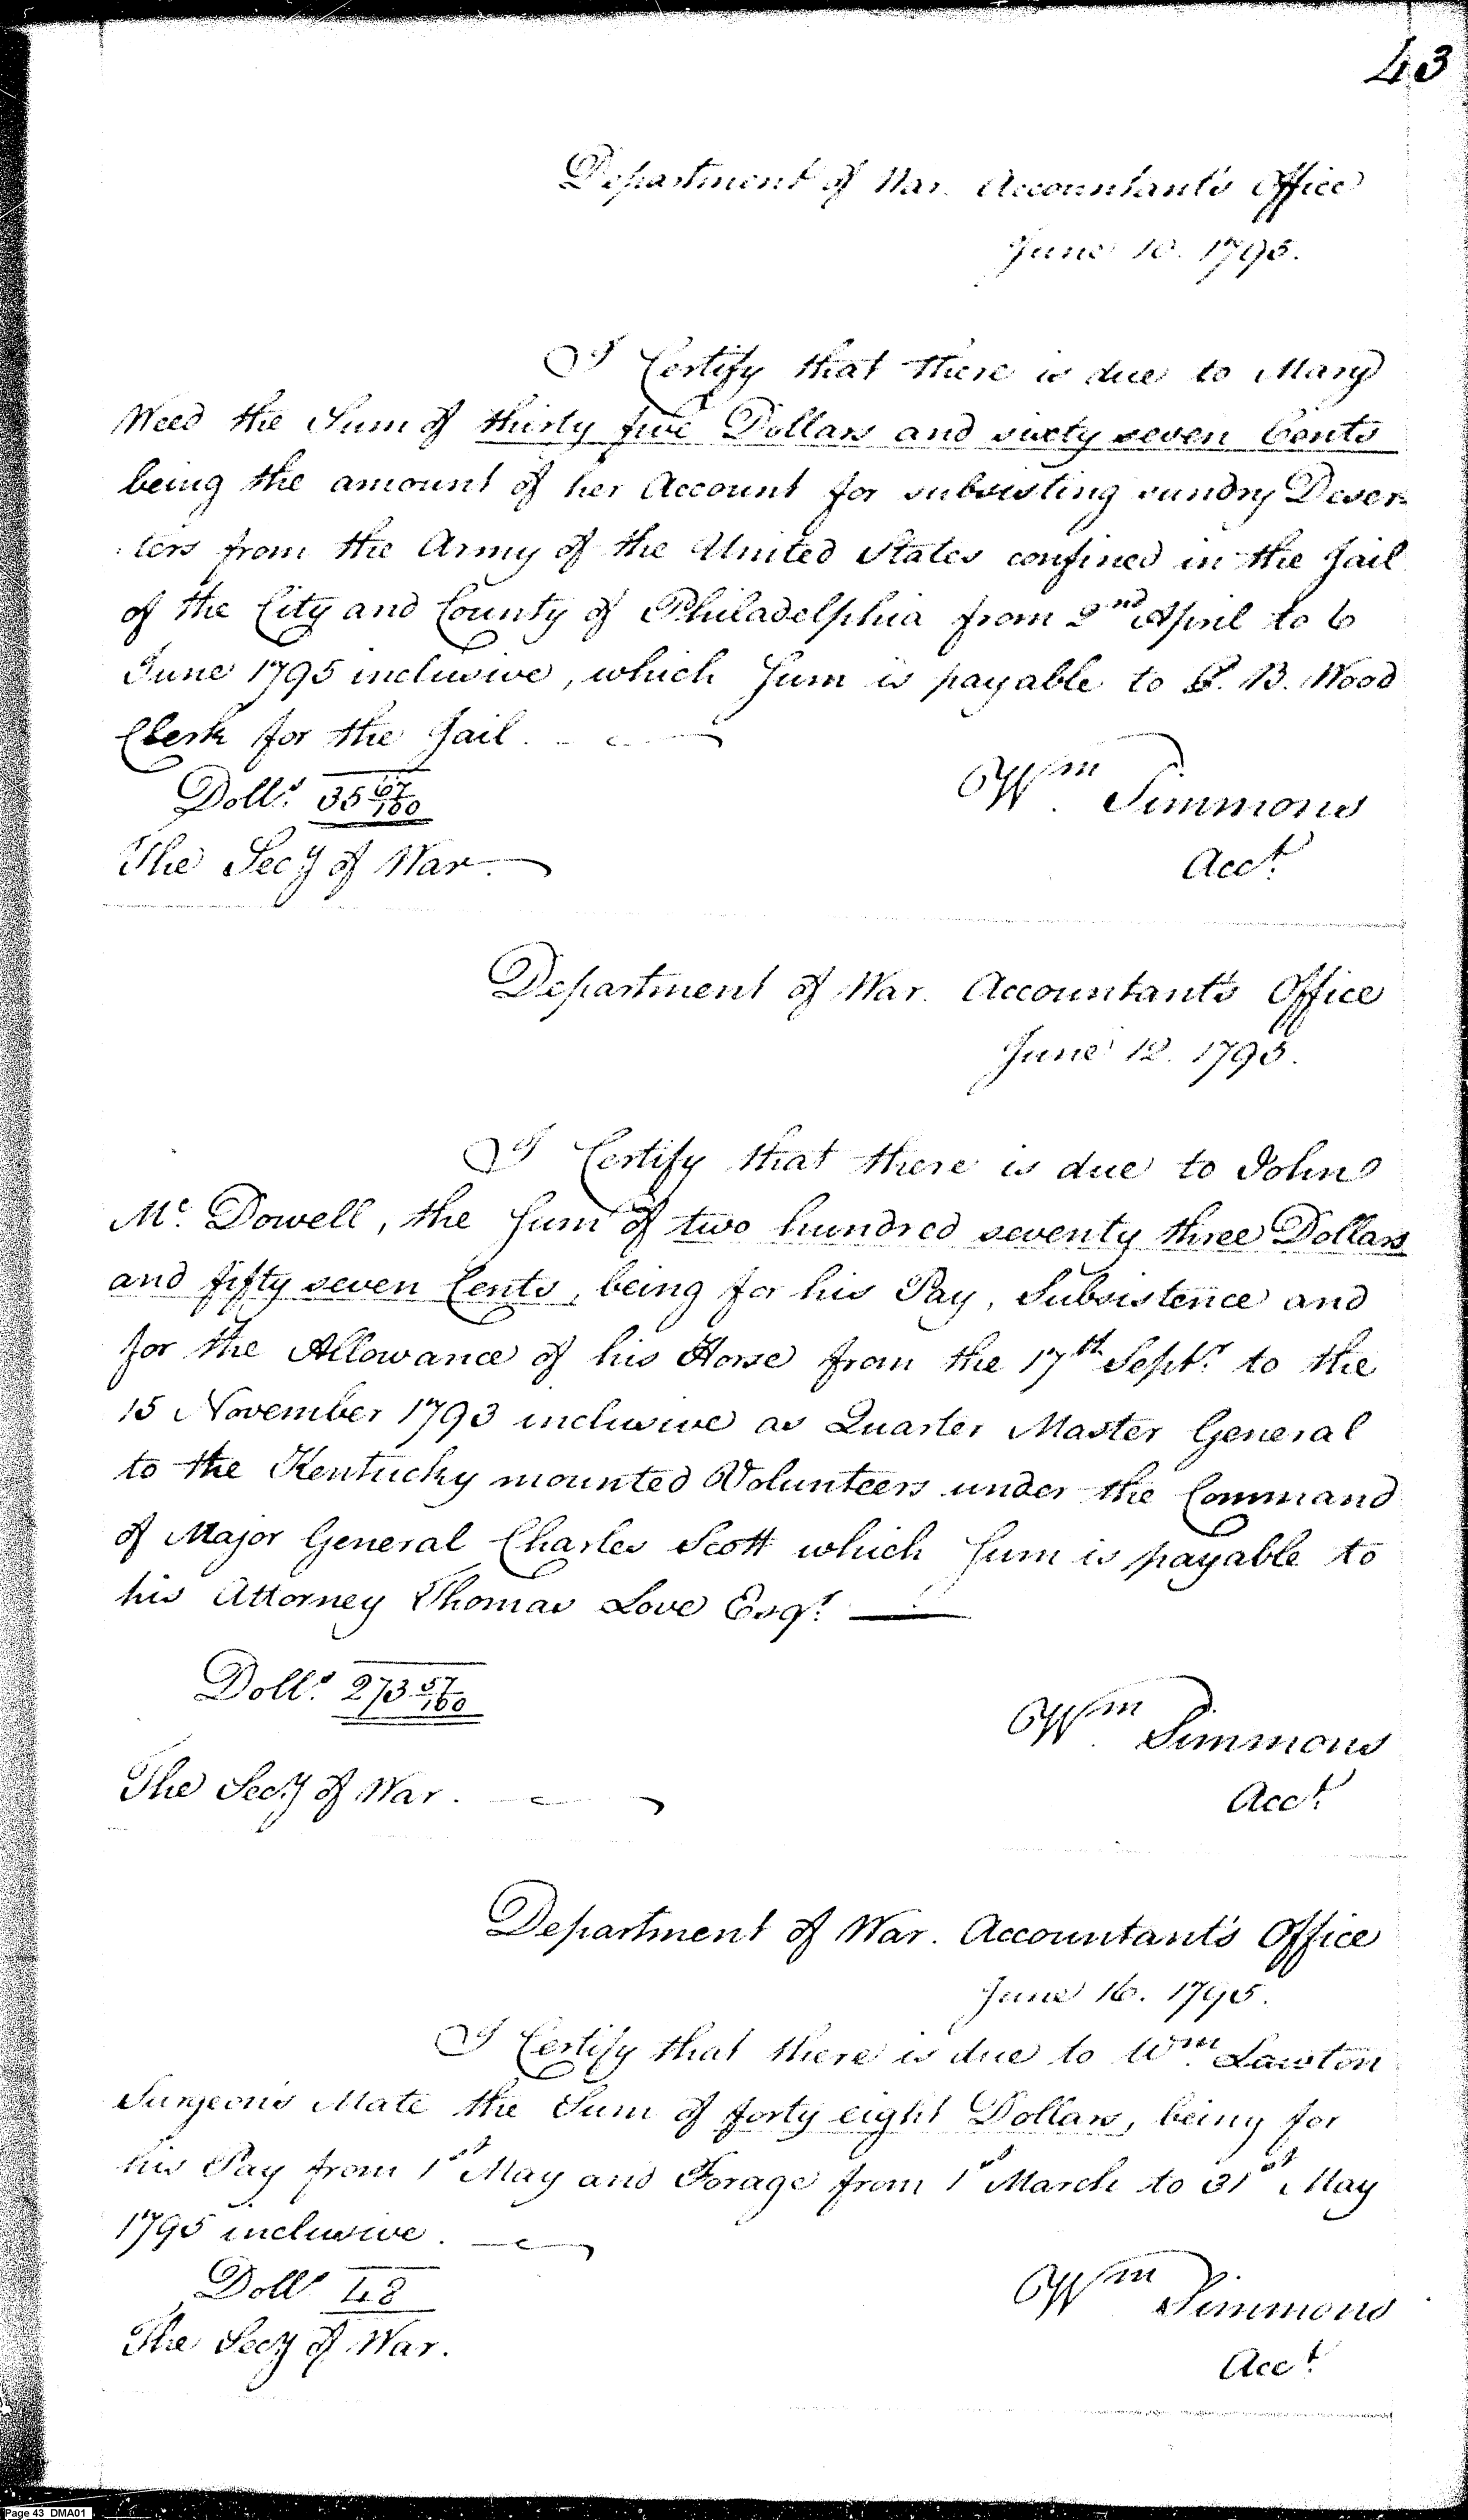 43
Department of War. Accountant's Office
June 10. 1795.
I Certify that there is due to Mary
Weed the Sum of thirty five Dollars and sixty seven Cents
being the amount of her Account for subsisting sundry Deser-
ters from the Army of the United States confined in the Jail
of the City and County of Philadelphia from 2nd April to 6
June 1795 inclusive, which Sum is payable to B. Wood
Clerk for the Jail.
Wm. Simmons
Dolls. 35 67/100
The Secy of War.
Acct.
Department of War. Accountant's Office
June 12. 1795.
I Certify that there is due to John
Mc. Dowell, the Sum of two hundred seventy three Dollars
and fifty seven Cents, being for his Pay, Subsistence and
for the Allowance of his Horse from the 17th Septr. to the
15 November 1793 inclusive as Quarter Master General
to the Kentucky mounted Volunteers under the Command
of Major General Charles Scott which Sum is payable to
his Attorney Thomas Love Esqr.
Dolls. 273 57/100
Wm. Simmons
The Secy of War.
Acct.
Department of War. Accountant's Office
June 16. 1795.
I Certify that there is due to Wm. Lawton
Surgeon's Mate the Sum of forty eight Dollars, being for
his Pay from 1st May and Forage from 1st March to 31st May
1795 inclusive.
Dolls 48
Wm Simmons
The Secy of War.
Acct.
Page 43 DMA01